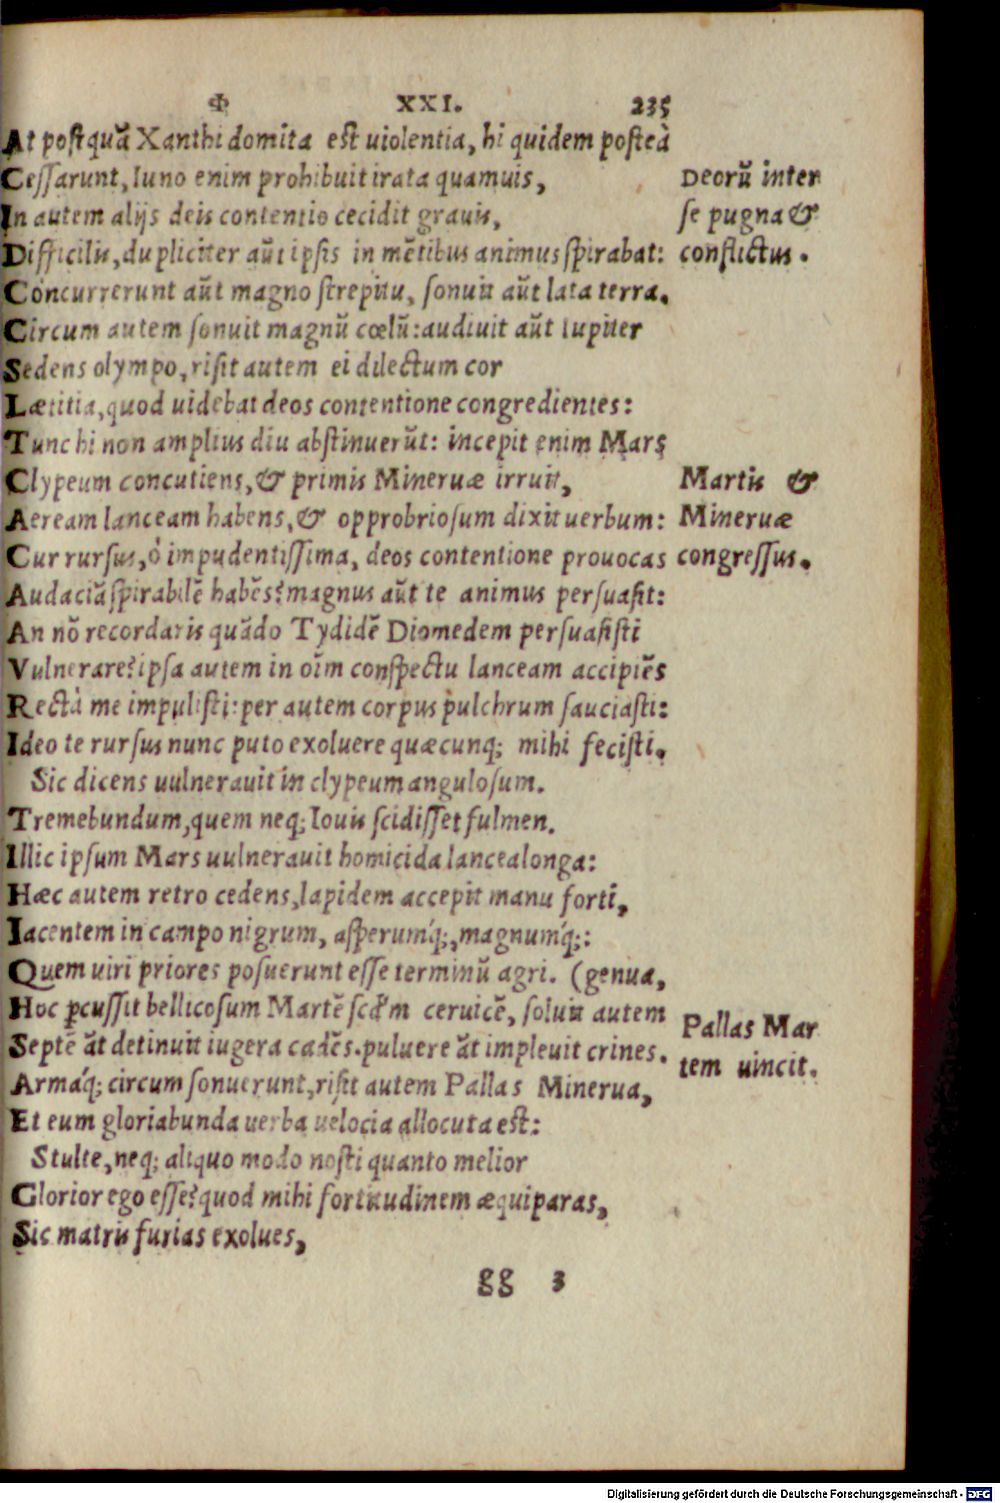 Φ XXI. 235
At postquã Xanthi domita est uiolentia, hi quidem posteà
Cessarunt, Iuno enim prohibuit irata quamuis,
In autem alijs deis contentio cecidit grauis,
Difficilis, dupliciter aũt ipsis in mẽtibus animus spirabat:
Concurrerunt aũt magno strepitu, sonuit aũt lata terra.
Circum autem sonuit magnũ cœlũ: audiuit aũt Iupiter
Sedens olympo, risit autem ei dilectum cor
Lætitia, quod uidebat deos contentione congredientes:
Tunc hi non amplius diu abstinuerũt: incepit enim Mars
Clypeum concutiens, & primis Mineruæ irruit,
Aeream lanceam habens, & opprobriosum dixit uerbum:
Cur rursus, ô impudentissima, deos contentione prouocas
Audaciã spirabilẽ habẽs? magnus aũt te animus persuasit:
An nõ recordaris quãdo Tydidẽ Diomedem persuasisti
Vulnerare? ipsa autem in oĩm conspectu lanceam accipiẽs
Rectà me impulisti: per autem corpus pulchrum sauciasti:
Ideo te rursus nunc puto exoluere quæcunq; mihi fecisti.
Sic dicens uulnerauit in clypeum angulosum.
Tremebundum, quem neq; Iouis scidisset fulmen.
Illic ipsum Mars uulnerauit homicida lancea longa:
Hæc autem retro cedens, lapidem accepit manu forti,
Iacentem in campo nigrum, asperumq́;, magnumq́;:
Quem uiri priores posuerunt esse terminũ agri. (genua,
Hoc ꝑcussit bellicosum Martẽ scďm ceruicẽ, soluit autem
Septẽ ãt detinuit iugera cadẽs. puluere ãt impleuit crines.
Armaq́; circum sonuerunt, risit autem Pallas Minerua,
Et eum gloriabunda uerba uelocia allocuta est:
Stulte, neq; aliquo modo nosti quanto melior
Glorior ego esse? quod mihi fortitudinem æquiparas,
Sic matris furias exolues,
gg 3
Deorũ inter
se pugna &
conflictus.
Martis &
Mineruæ
congressus.
Pallas Mar
tem uincit.
Digitalisierung gefördert durch die Deutsche Forschungsgemeinschaft - DFG